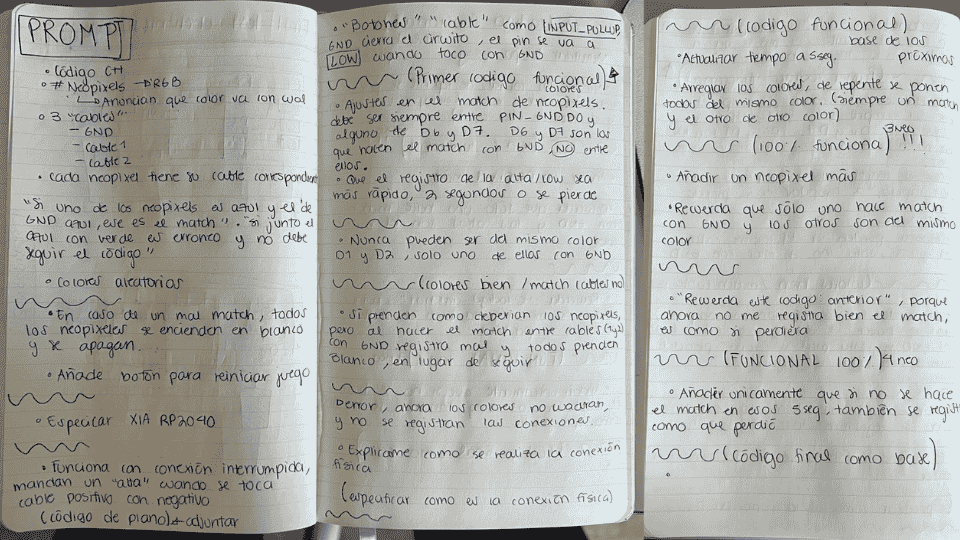 PROMPT
• Código C++
• # Neopixels → RGB
↳ Anuncian que color va con cual
• 3 "cables"
- GND
- Cable 1
- Cable 2
• cada neopixel tiene su cable correspondiente
"Si uno de los neopixels es azul y el de
GND azul, ese es el match". "si junto el
azul con verde es erroneo y no debe
seguir el código"
• Colores aleatorios
• En caso de un mal match, todos
los neopixeles se encienden en blanco
y se apagan.
• Añade botón para reiniciar juego
• Especificar XIA RP2040
• Funciona con conexión interrumpida,
mandan un "alta" cuando se toca
cable positivo con negativo
(código de piano) ← adjuntar
• "Botones" "cable" como INPUT_PULLUP
GND cierra el circuito, el pin se va a
LOW cuando toco con GND
(Primer codigo funcional)
colores
• Ajustes en el match de neopixels.
debe ser siempre entre PIN-GND D0 y
alguno de D6 y D7. D6 y D7 son los
que hacen el match con GND NO entre
ellos.
• Que el registro de la alta/low sea
más rápido, 2 segundos o se pierde
• Nunca pueden ser del mismo color
D1 y D2, solo uno de ellas con GND
(colores bien / match cables no)
• Si prenden como deberian los neopixels,
pero al hacer el match entre cables (1 y 2)
con GND registra mal y todos prenden
Blanco, en lugar de seguir
Peor, ahora los colores no cuadran,
y no se registran las conexiones.
• Explicame como se realiza la conexión
física
(espeuficar como es la conexión física)
(codigo funcional)
base de los
próximos
• Actualizar tiempo a 5seg.
• Arreglar los colores, de repente se ponen
todos del mismo color. (siempre un match
y el otro de otro color)
(100% funciona) 3neo !!!
• Añadir un neopixel más
• Recuerda que sólo uno hace match
con GND y los otros son del mismo
color
• "Recuerda este codigo anterior", porque
ahora no me registra bien el match,
es como si perdiera
(FUNCIONAL 100%) 4 neo
• Añadir unicamente que si no se hace
el match en esos 5seg, también se regist
como que perdió
(código final como base)
•